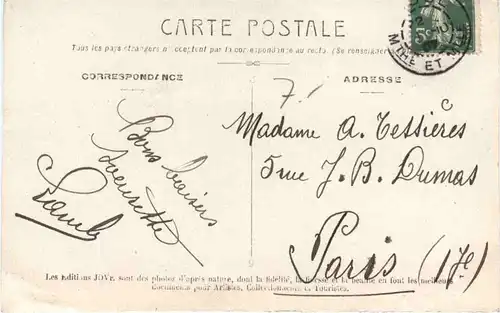 CARTE POSTALE
Tous les pays étrangers n'acceptent pas la correspondance au recto. (Se renseigner
CORRESPONDANCE
ADRESSE
5c
MTHE ET M
Bons baisers
Madame A. Tessières
5 rue J. B. Dumas
Paris (17e)
Les Editions JOVE, sont des photos d'après nature, dont la fidélité, la finesse et la beauté en font les meilleurs
documents pour Artistes, Collectionneurs et Touristes.